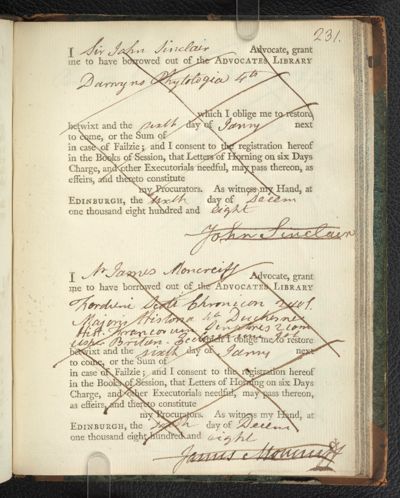 231.
I Sir John Sinclair Advocate, grant
me to have borrowed out of the ADVOCATES LIBRARY
Darwyns Phytologia 4to
which I oblige me to restore
betwixt and the sixth day of Janry next
to come, or the Sum of
in case of Failzie; and I consent to the registration hereof
in the Books of Session, that Letters of Horning on six Days
Charge, and other Executorials needful, may pass thereon, as
effeirs, and thereto constitute
my Procurators. As witness my Hand, at
EDINBURGH, the sixth day of Decem
one thousand eight hundred and eight
John Sinclair
I Mr James Moncreiff Advocate, grant
me to have borrowed out of the ADVOCATES LIBRARY
Forduni Scoti Chronicon 2 vols.
Majoris Historia Duchesne
Hist. Francorum Scriptores
Britan. which I oblige me to restore
betwixt and the sixth day of Janry next
to come, or the Sum of
in case of Failzie; and I consent to the registration hereof
in the Books of Session, that Letters of Horning on six Days
Charge, and other Executorials needful, may pass thereon,
as effeirs, and thereto constitute
my Procurators. As witness my Hand, at
EDINBURGH, the sixth day of Decem
one thousand eight hundred and eight
James Moncreiff